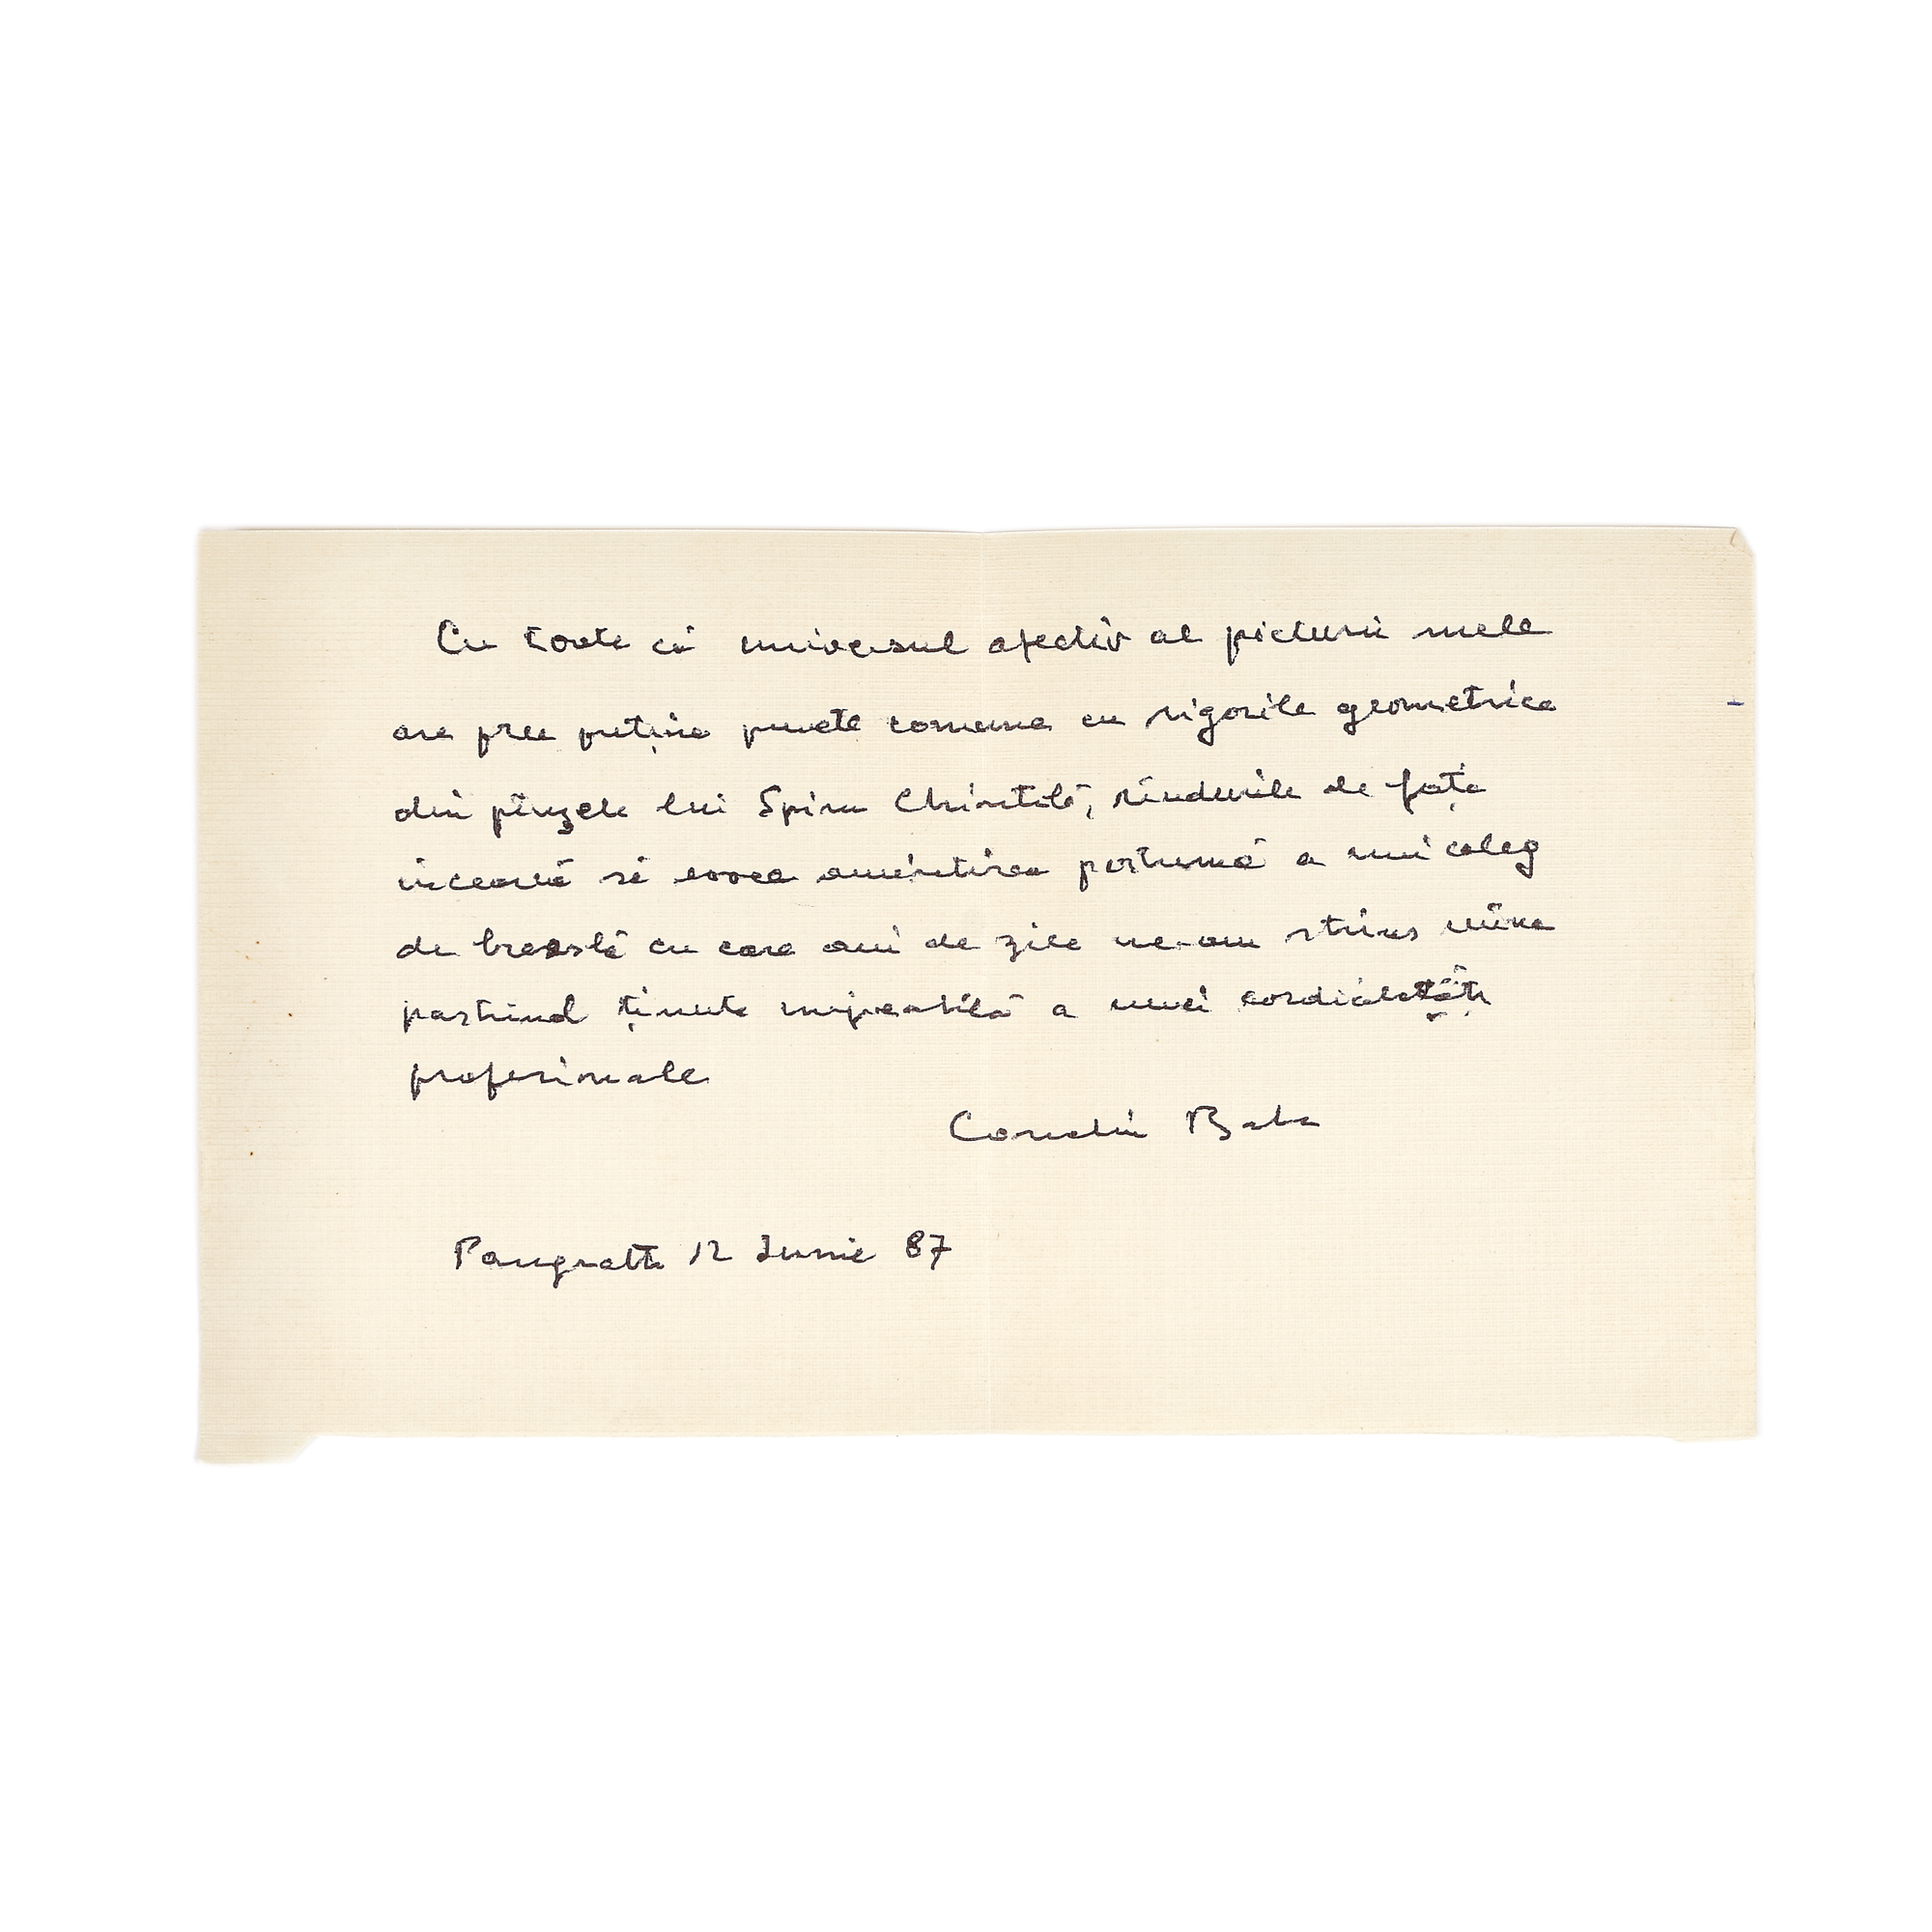 Cu toate că universul afectiv al picturii mele
are prea puține puncte comune cu rigorile geometrice
din pînzele lui Spiru Chintilă, rîndurile de față
încearcă să evoce amintirea postumă a unui coleg
de breaslă cu care ani de zile ne-am strîns mîna
pastrînd ținuta impecabilă a unei cordialități
profesionale
Corneliu Baba
Pangratti 12 Iunie 87